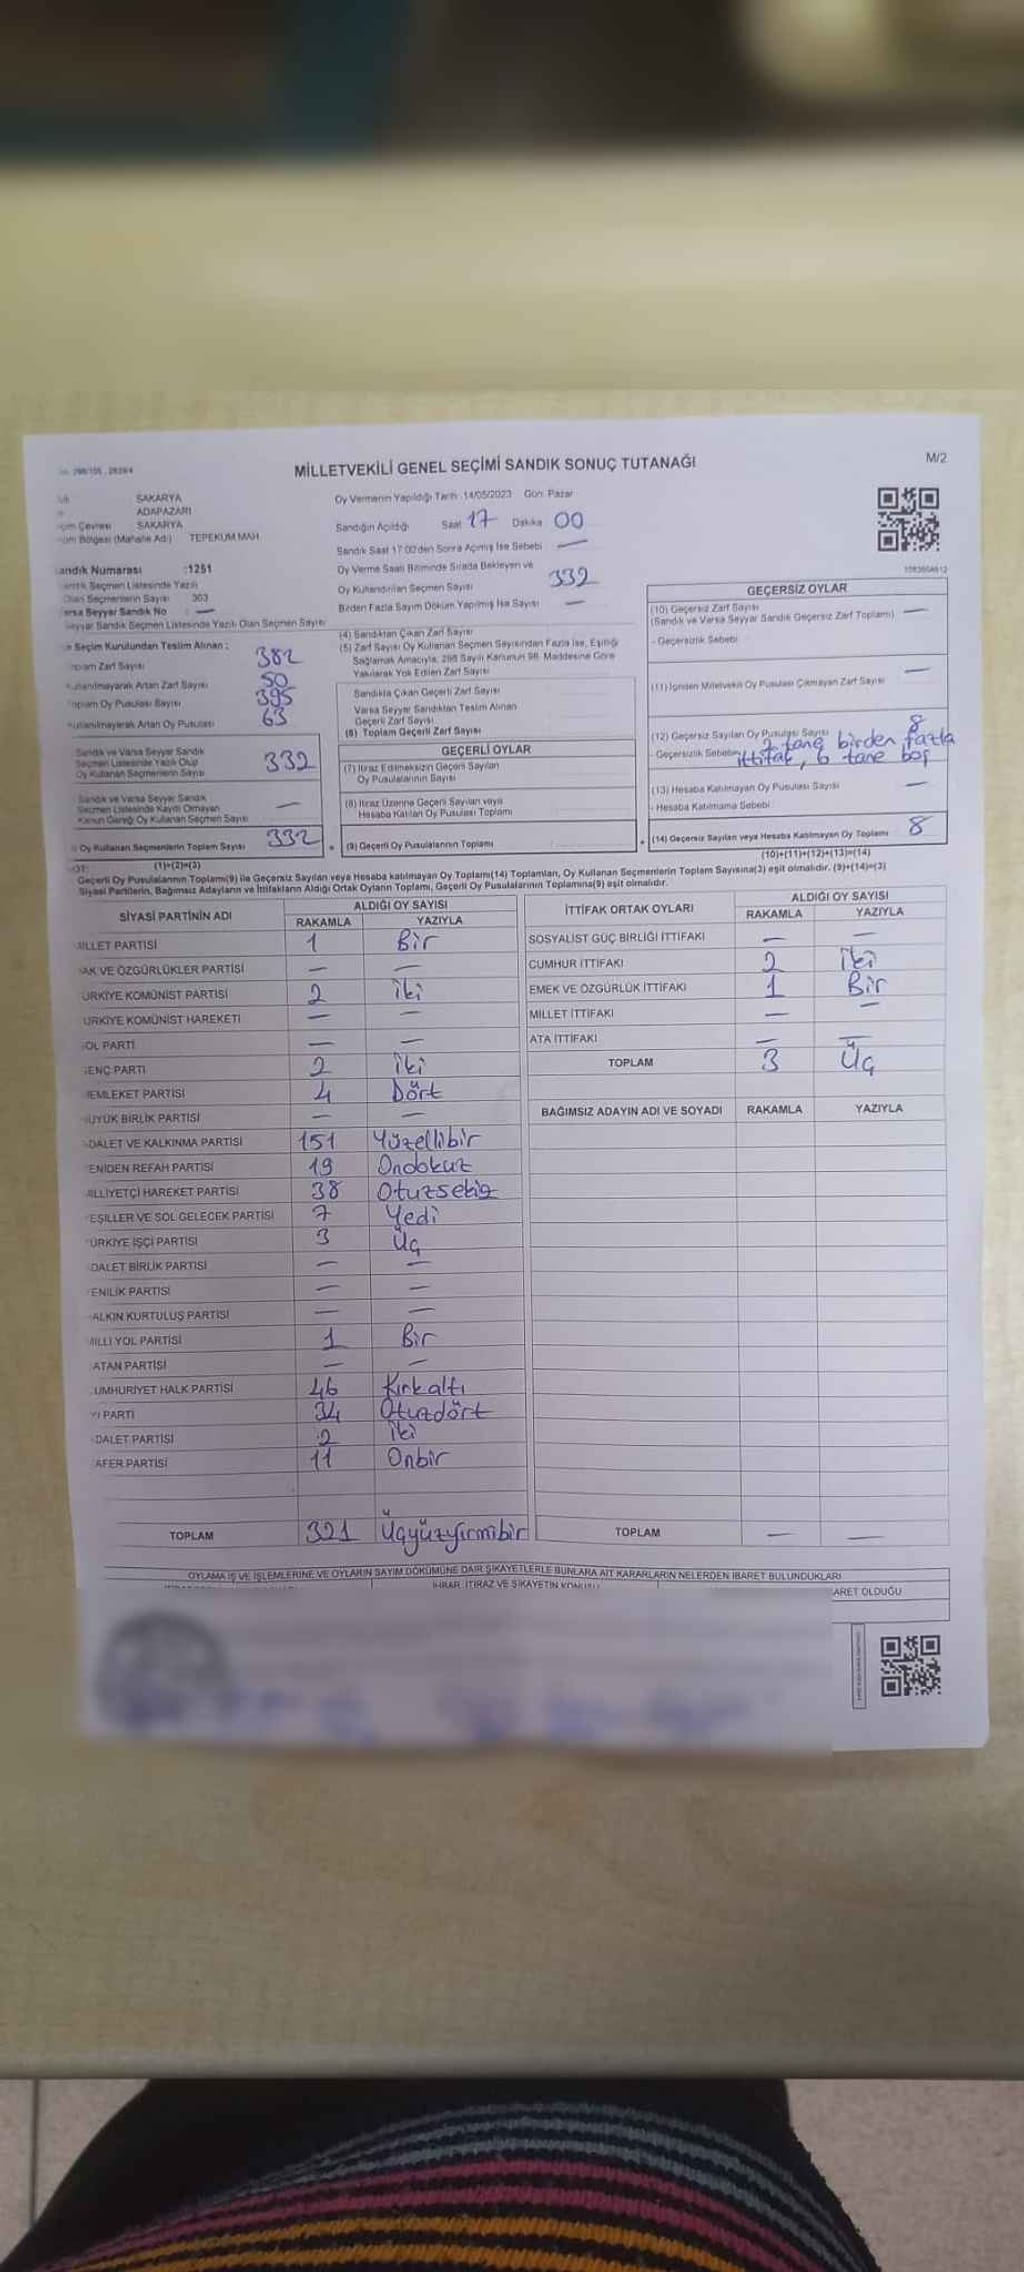 MİLLETVEKİLİ GENEL SEÇİMİ SANDIK SONUÇ TUTANAĞI
M/2
SAKARYA
ADAPAZARI
SAKARYA
TEPEKUM MAH.
Oy Vermenin Yapıldığı Tarih :14/05/2023 Gün: Pazar
Sandığın Açıldığı Saat 17 Dakika 00
Sandık Saat 17:00'den Sonra Açılmış İse Sebebi —
Oy Verme Saati Bitiminde Sırada Bekleyen ve
Oy Kullandırılan Seçmen Sayısı 332
Birden Fazla Sayım Döküm Yapılmış İse Sayısı —
andık Numarası :1251
Seçmen Listesinde Yazılı
Olan Seçmenlerin Sayısı 303
arsa Seyyar Sandık No : —
eyyar Sandık Seçmen Listesinde Yazılı Olan Seçmen Sayısı
e Seçim Kurulundan Teslim Alınan :
oplam Zarf Sayısı 382
ullanılmayarak Artan Zarf Sayısı 50
oplam Oy Pusulası Sayısı 395
ullanılmayarak Artan Oy Pusulası 63
Sandık ve Varsa Seyyar Sandık
Seçmen Listesinde Yazılı Olup
Oy Kullanan Seçmenlerin Sayısı 332
Sandık ve Varsa Seyyar Sandık
Seçmen Listesinde Kaydı Olmayan
Kanun Gereği Oy Kullanan Seçmen Sayısı —
Oy Kullanan Seçmenlerin Toplam Sayısı 332
(1)+(2)=(3)
(4) Sandıktan Çıkan Zarf Sayısı
(5) Zarf Sayısı Oy Kullanan Seçmen Sayısından Fazla İse, Eşitliği
Sağlamak Amacıyla, 298 Sayılı Kanunun 98. Maddesine Göre
Yakılarak Yok Edilen Zarf Sayısı
Sandıkta Çıkan Geçerli Zarf Sayısı
Varsa Seyyar Sandıktan Teslim Alınan
Geçerli Zarf Sayısı
(6) Toplam Geçerli Zarf Sayısı
GEÇERLİ OYLAR
(7) İtiraz Edilmeksizin Geçerli Sayılan
Oy Pusulalarının Sayısı
(8) İtiraz Üzerine Geçerli Sayılan veya
Hesaba Katılan Oy Pusulası Toplamı
(9) Geçerli Oy Pusulalarının Toplamı
GEÇERSİZ OYLAR
(10) Geçersiz Zarf Sayısı —
(Sandık ve Varsa Seyyar Sandık Geçersiz Zarf Toplamı)
- Geçersizlik Sebebi
(11) İçinden Milletvekili Oy Pusulası Çıkmayan Zarf Sayısı —
(12) Geçersiz Sayılan Oy Pusulası Sayısı 8
- Geçersizlik Sebebi 2 tane birden fazla
ittifak, 6 tane boş
(13) Hesaba Katılmayan Oy Pusulası Sayısı —
- Hesaba Katılmama Sebebi
(14) Geçersiz Sayılan veya Hesaba Katılmayan Oy Toplamı 8
(10)+(11)+(12)+(13)=(14)
Geçerli Oy Pusulalarının Toplamı(9) ile Geçersiz Sayılan veya Hesaba katılmayan Oy Toplamı(14) Toplamları, Oy Kullanan Seçmenlerin Toplam Sayısına(3) eşit olmalıdır. (9)+(14)=(3)
Siyasi Partilerin, Bağımsız Adayların ve İttifakların Aldığı Ortak Oyların Toplamı, Geçerli Oy Pusulalarının Toplamına(9) eşit olmalıdır.
SİYASİ PARTİNİN ADI ALDIĞI OY SAYISI
RAKAMLA YAZIYLA
MİLLET PARTİSİ 1 Bir
AK VE ÖZGÜRLÜKLER PARTİSİ — —
ÜRKİYE KOMÜNİST PARTİSİ 2 İki
ÜRKİYE KOMÜNİST HAREKETİ — —
OL PARTİ — —
ENÇ PARTİ 2 İki
EMLEKET PARTİSİ 4 Dört
ÜYÜK BİRLİK PARTİSİ — —
DALET VE KALKINMA PARTİSİ 151 Yüzellibir
ENİDEN REFAH PARTİSİ 19 Ondokuz
İLLİYETÇİ HAREKET PARTİSİ 38 Otuzsekiz
EŞİLLER VE SOL GELECEK PARTİSİ 7 Yedi
ÜRKİYE İŞÇİ PARTİSİ 3 Üç
DALET BİRLİK PARTİSİ — —
ENİLİK PARTİSİ — —
ALKIN KURTULUŞ PARTİSİ — —
İLLİ YOL PARTİSİ 1 Bir
ATAN PARTİSİ — —
UMHURİYET HALK PARTİSİ 46 Kırkaltı
Yİ PARTİ 34 Otuzdört
DALET PARTİSİ 2 İki
AFER PARTİSİ 11 Onbir
TOPLAM 321 Üçyüzyirmibir
İTTİFAK ORTAK OYLARI ALDIĞI OY SAYISI
RAKAMLA YAZIYLA
SOSYALİST GÜÇ BİRLİĞİ İTTİFAKI — —
CUMHUR İTTİFAKI 2 İki
EMEK VE ÖZGÜRLÜK İTTİFAKI 1 Bir
MİLLET İTTİFAKI — —
ATA İTTİFAKI — —
TOPLAM 3 Üç
BAĞIMSIZ ADAYIN ADI VE SOYADI RAKAMLA YAZIYLA
TOPLAM — —
OYLAMA İŞ VE İŞLEMLERİNE VE OYLARIN SAYIM DÖKÜMÜNE DAİR ŞİKAYETLERLE BUNLARA AİT KARARLARIN NELERDEN İBARET BULUNDUKLARI
İHBAR, İTİRAZ VE ŞİKAYETİN KONUSU
ARET OLDUĞU